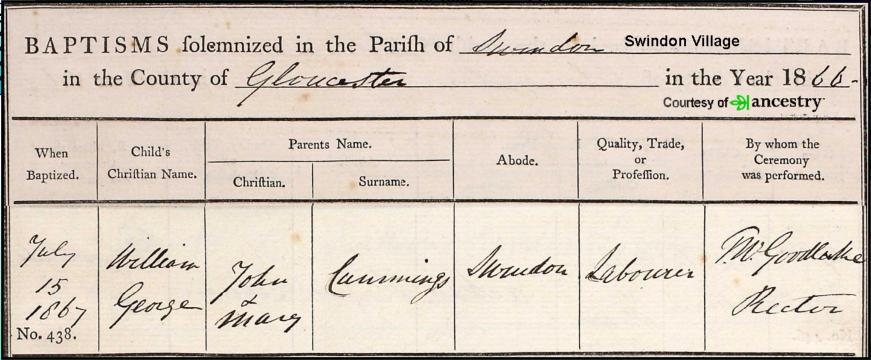 BAPTISMS ſolemnized in the Pariſh of Swindon Swindon Village
in the County of Gloucester in the Year 1866-
Courtesy of ancestry
When
Baptized.
Child's
Chriſtian Name.
Parents Name.
Chriſtian.
Surname.
Abode.
Quality, Trade,
or
Profeſſion.
By whom the
Ceremony
was performed.
July
15
1867
No. 438.
William
George
John
&
Mary
Cummings
Swindon
Labourer
Goodlake
Rector